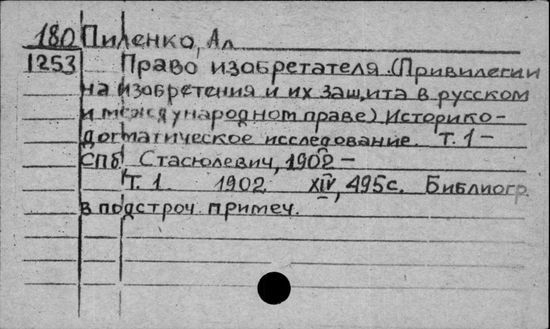 180 Пиленко, Ал
1253 Право изобретателя. (Привилегии
на изобретения и их защита в русском
и международном праве) Историко-
догматическое исследование. Т. 1 –
СПб, Стасюлевич, 1902 –
Т. 1. 1902 XIV, 495с. Библиогр.
в подстроч. примеч.